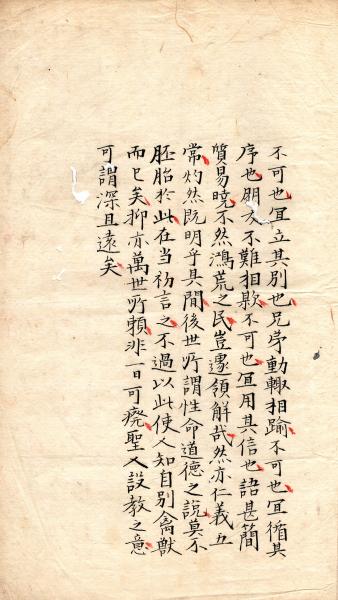 不可也宜立其別也兄弟動輙相踰不可也宜循其
序也朋友不難相欺不可也宜用其信也語甚簡
質易曉不然鴻荒之民豈遽領解哉然亦仁義五
常灼然既明乎其間後世所謂性命道德之說莫不
胚胎於此在当初言之不過以此使人知自別禽獸
而已矣抑亦萬世所賴非一日可廃聖人設教之意
可謂深且遠矣